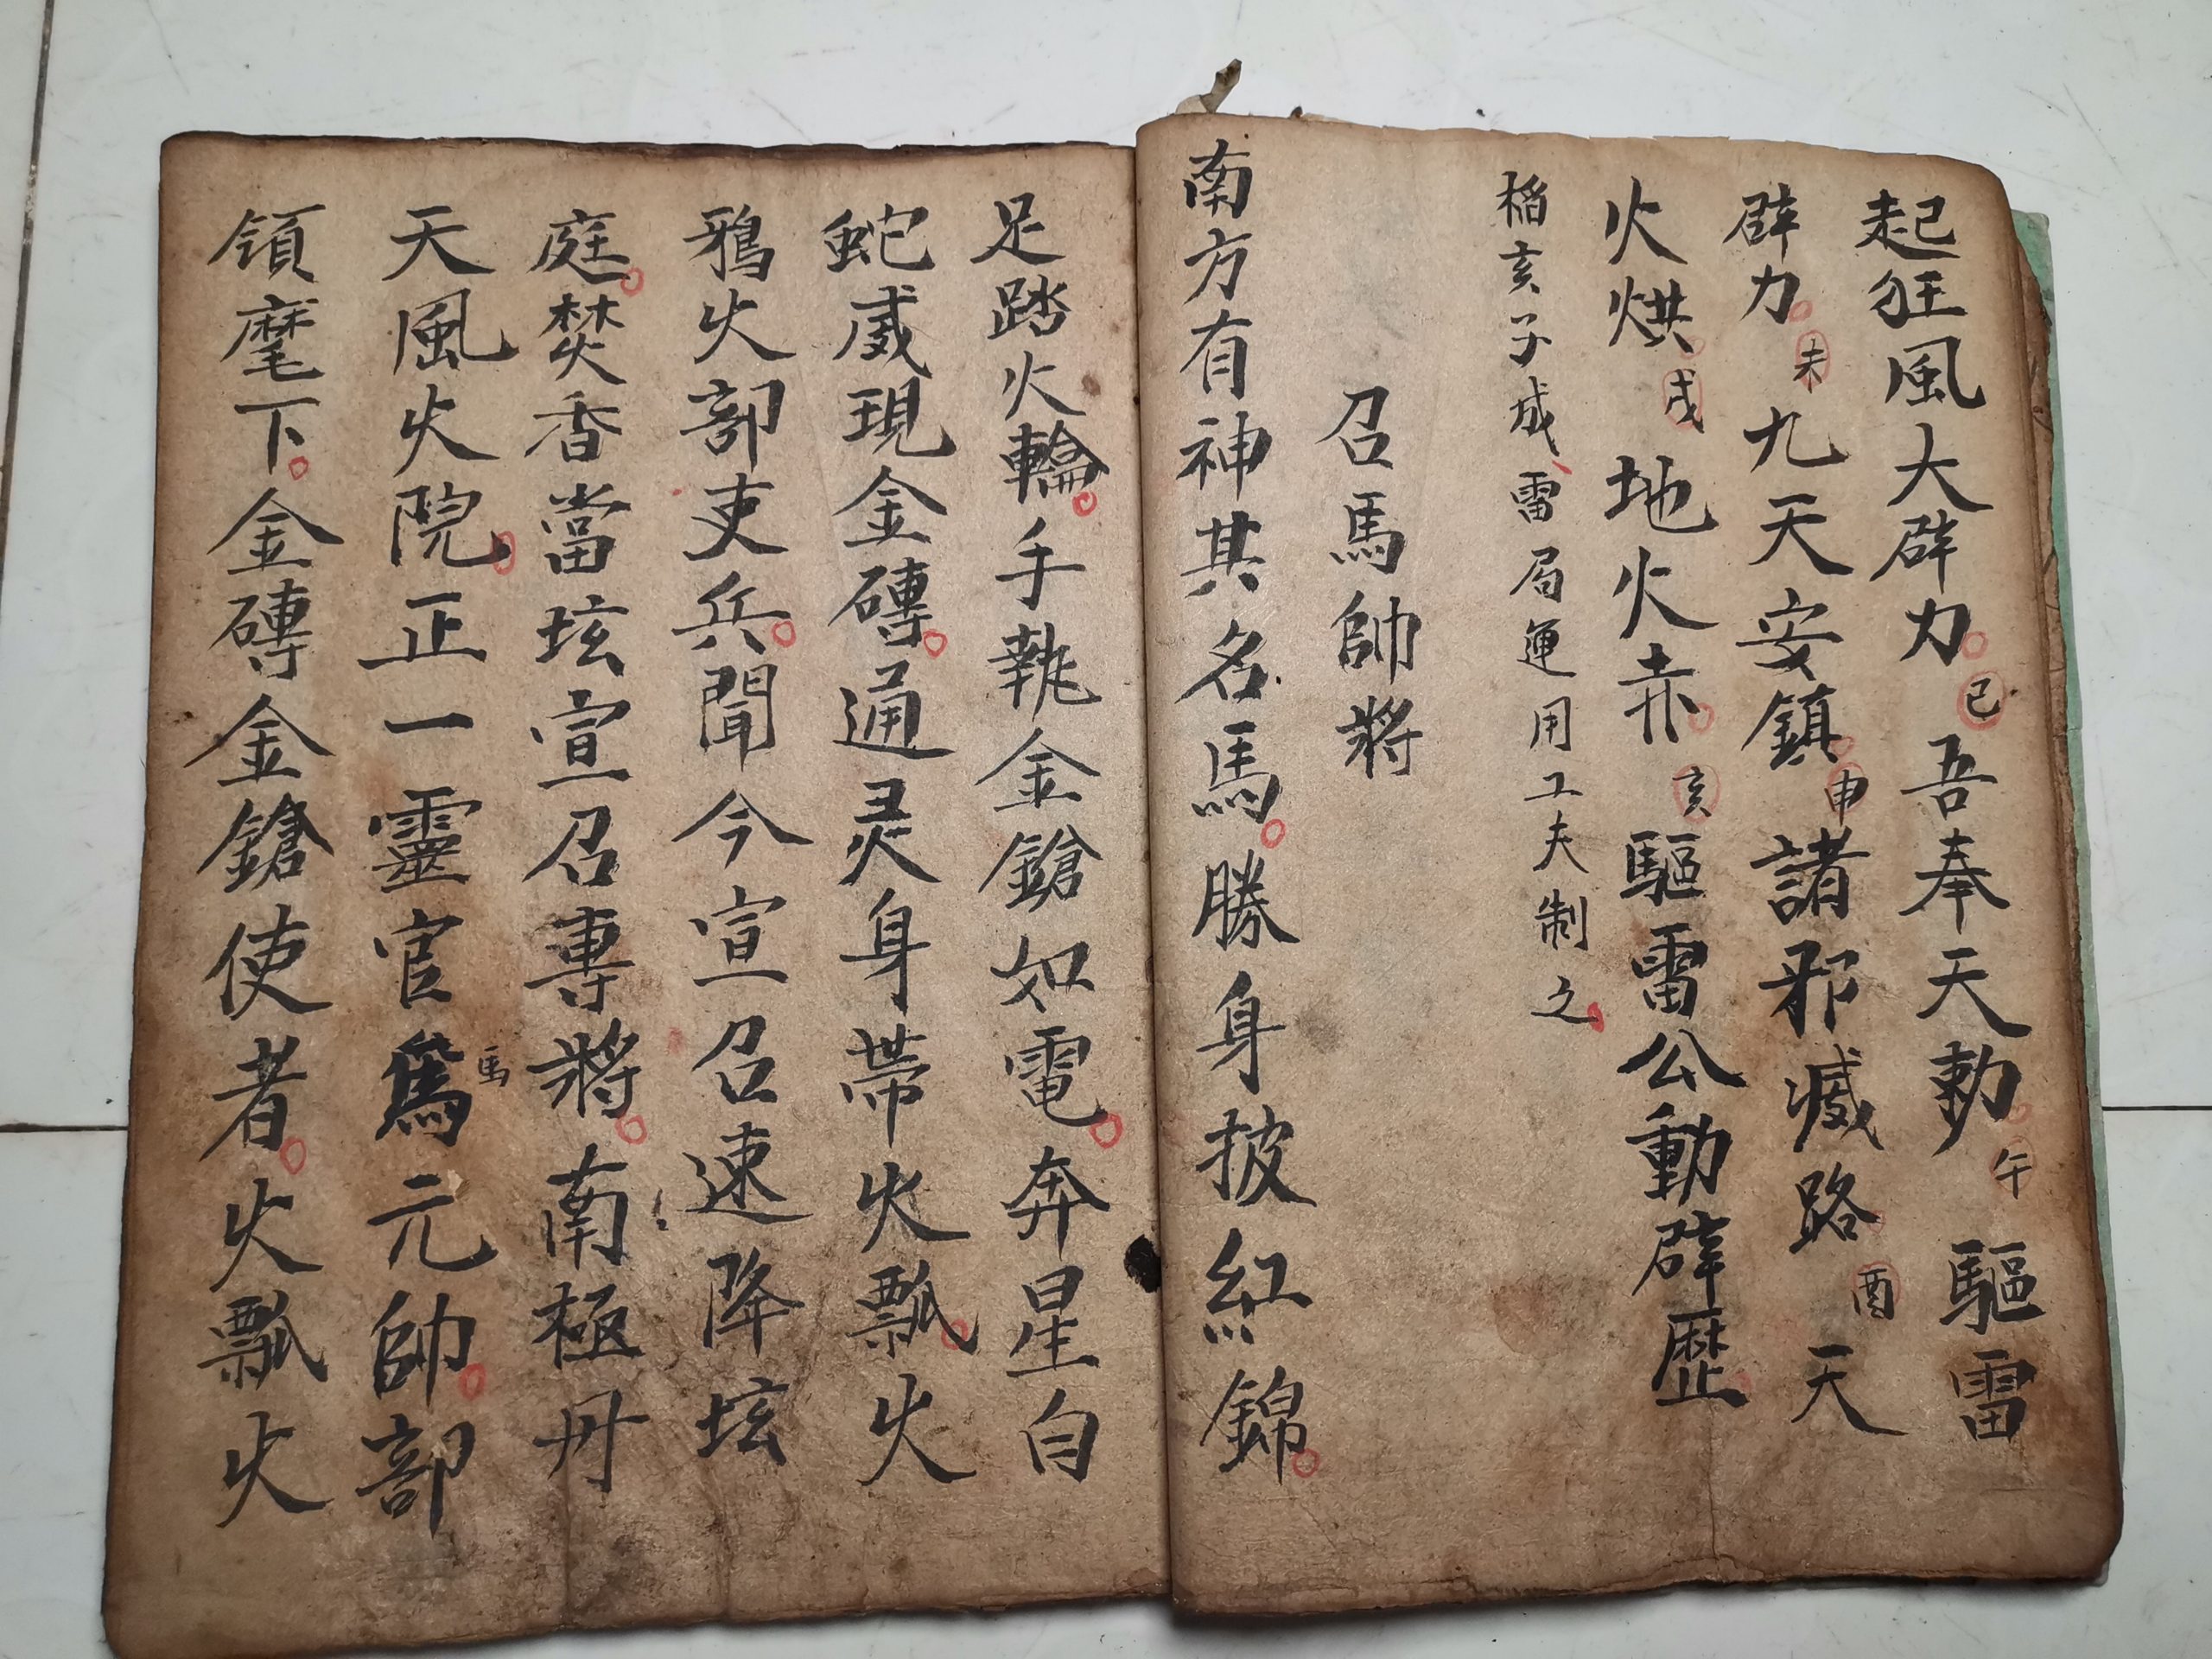 起狂風大辟力巳吾奉天勅午驅雷
辟力未九天安鎮申諸邪滅路酉天
火烘戌地火赤亥驅雷公動辟歷
稻亥子成雷局運用工夫制之
召馬帥將
南方有神其名馬勝身披紅錦
足踏火輪手執金鎗如電奔星白
蛇威現金磚通灵身帯火瓢火
鴉火部吏兵聞今宣召速降坛
庭焚香當坛宣召專將南極丹
天風火院正一靈官馬元帥部
領麾下金磚金鎗使者火瓢火